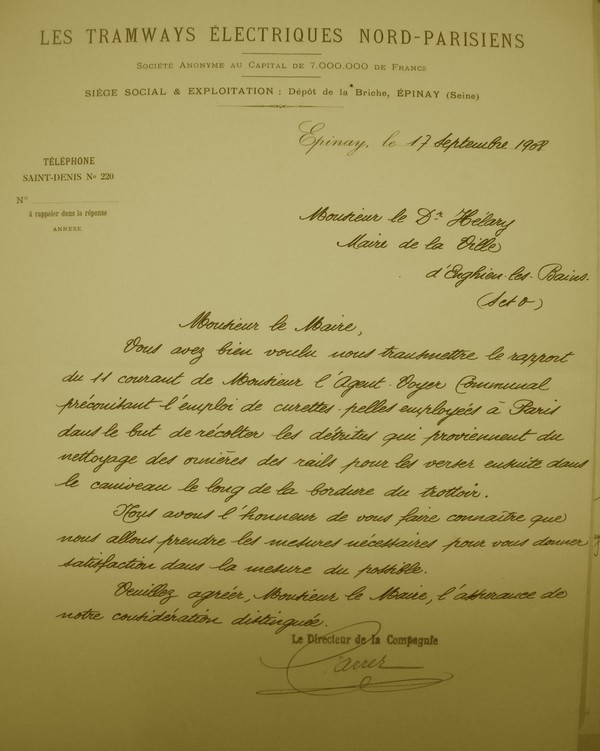 LES TRAMWAYS ÉLECTRIQUES NORD-PARISIENS
SOCIÉTÉ ANONYME AU CAPITAL DE 7.000.000 DE FRANCS
SIÈGE SOCIAL & EXPLOITATION : Dépôt de la Briche, ÉPINAY (Seine)
Epinay, le 17 Septembre 1908
TÉLÉPHONE
SAINT-DENIS No 220
No
à rappeler dans la réponse
ANNEXE
Monsieur le Dr Hélary
Maire de la Ville
d'Enghien-les-Bains.
(S et O)
Monsieur le Maire,
Vous avez bien voulu nous transmettre le rapport
du 11 courant de Monsieur l'Agent-Voyer Communal
préconisant l'emploi de curettes-pelles employées à Paris
dans le but de récolter les détritus qui proviennent du
nettoyage des ornières des rails pour les verser ensuite dans
le caniveau le long de la bordure du trottoir.
Nous avons l'honneur de vous faire connaître que
nous allons prendre les mesures nécessaires pour vous donner
satisfaction dans la mesure du possible.
Veuillez agréer, Monsieur le Maire, l'assurance de
notre considération distinguée.
Le Directeur de la Compagnie